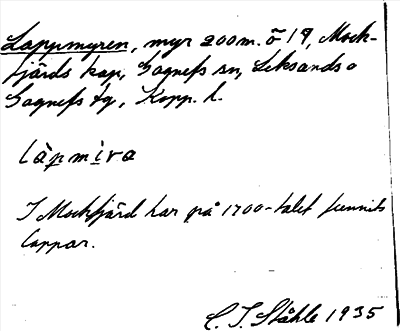 Lappmyren, myr 200 m. ö 19, Mock-
fjärds kap, Gagnefs sn, Leksands o
Gagnefs tg, Kopp. l.
làpmìra
I Mockfjärd har på 1700-talet funnits
lappar.
C. I. Ståhle 1935